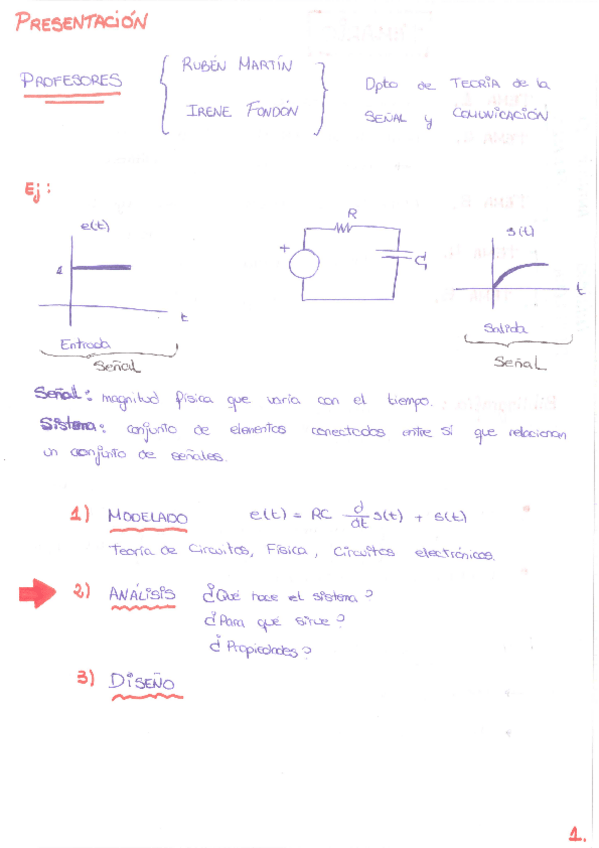 PRESENTACIÓN
PROFESORES { RUBÉN MARTÍN
IRENE FONDÓN } Dpto de TEORÍA de la
SEÑAL y COMUNICACIÓN
Ej:
e(t)
1
t
Entrada
Señal
R
+
C
s(t)
t
Salida
Señal
Señal: magnitud física que varía con el tiempo.
Sistema: conjunto de elementos conectados entre sí que relacionan
un conjunto de señales.
1) MODELADO e(t) = RC d/dt s(t) + s(t)
Teoría de Circuitos, Física, Circuitos electrónicos.
2) ANÁLISIS ¿Qué hace el sistema?
¿Para qué sirve?
¿Propiedades?
3) DISEÑO
1.